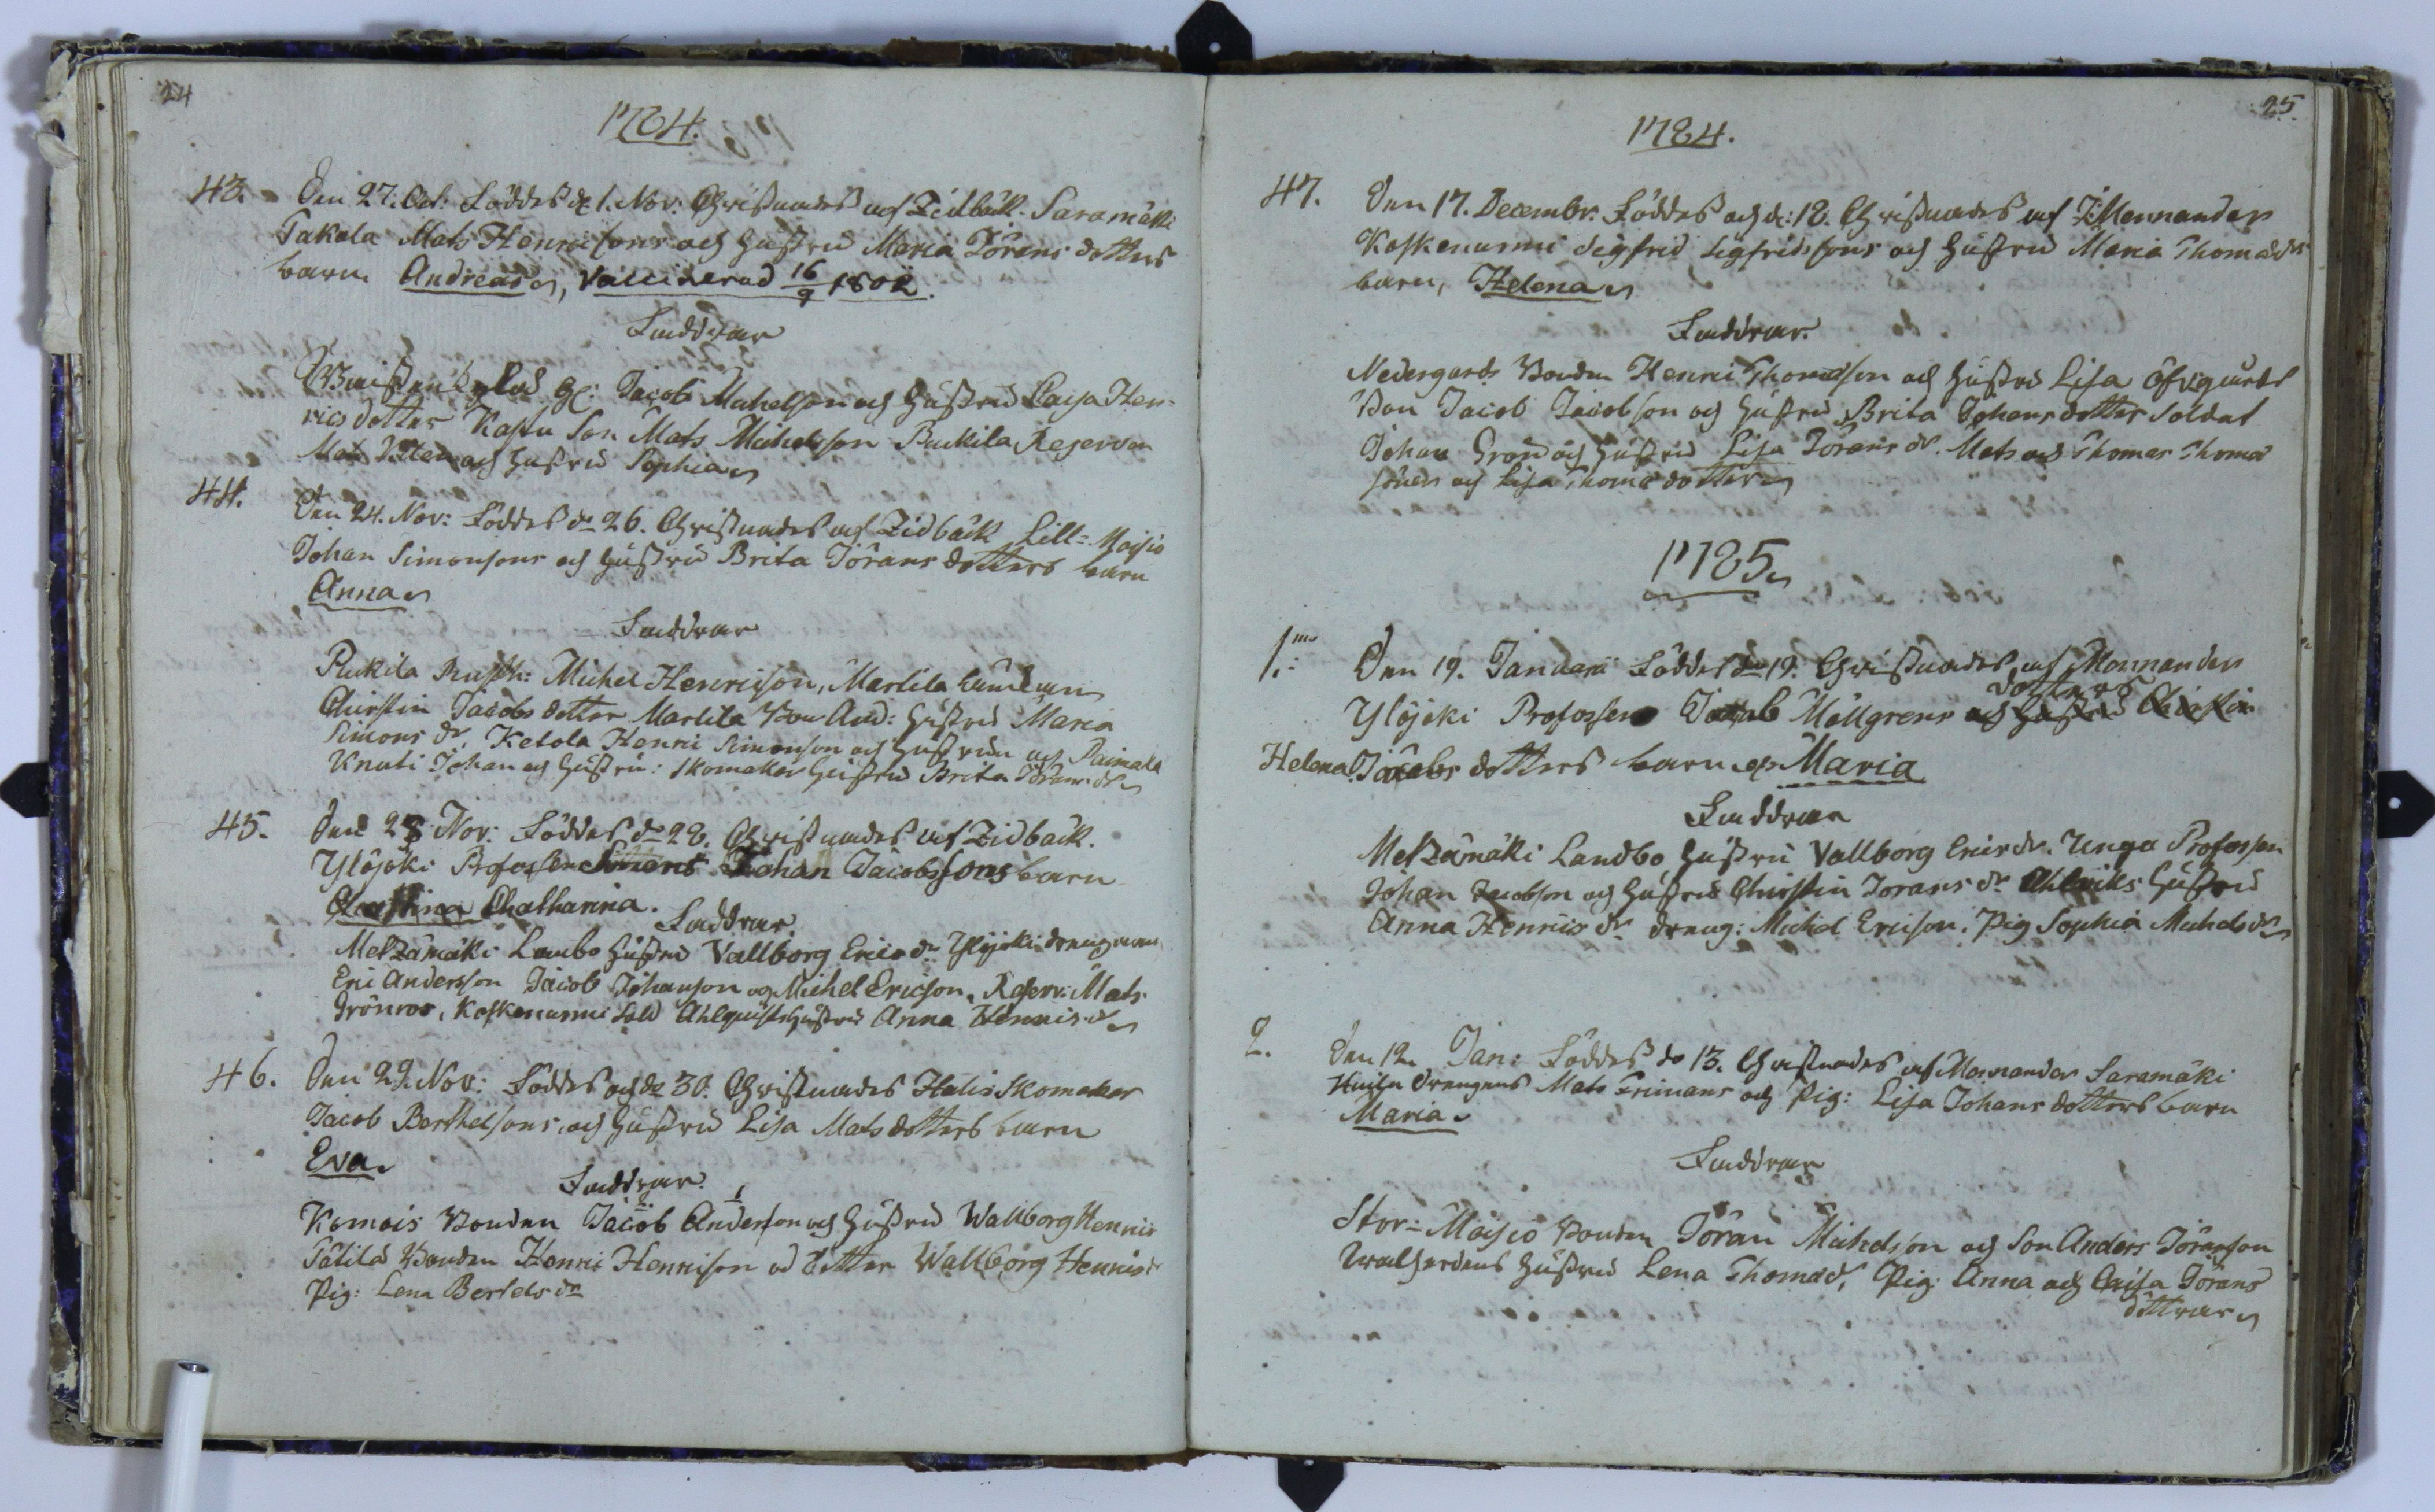 24
1784.
43. Den 27. Oct: Föddes d 1. Nov: Christnades af Zidbäck. Saramäki
Takala Mats Henricsons och Hustru Maria Jörans dotters
barn Andreas, Vaccinerad 16/9 1802.
Faddrar
Gl: Jacob Michelson och Hustru Caisa Hen-
rics dotter Kastu Son Mats Michelsson Puckila Reserven
Mats och Hustru Sophia
44. Den 24. Nov: Föddes d 26. Christnades af Zidbäck Lill-Moisio
Johan Simonsons och Hustru Brita Jörans dotters barn
Anna
Faddrar
Puckila Rusth: Michel Henricsson, Marlila
Christin Jacobs dotter Marlila Bon And: Hustru Maria
Simons dr, Ketola Henric Simonson och Hustrun och Paimala
Knuti Johan och Hustru: Skomakar Hustru Brita Jörans dr
45. Den 28 Nov: Föddes d 28. Christnades af Zidbäck.
Ylöjoki Profossen Johan Jacobssons barn
Christina Chatharina.
Faddrar.
Metzämäki Lanbo Hustru Vallborg Erics dr Ylöjoki drengarna
Eric Andersson Jacob Johanson og Michel Ericson, Reserv: Mats
Grönroos, Koskenurmi Sold Ahlquists Hustru Anna Henrics dr
46. Den 29. Nov: Föddes och d 30. Christnades Halis Skomakar
Jacob Berthelsons, och Hustru Lisa Mats dotters barn
Eva.
Faddrar.
Komois Bonden Jacob Anderson och Hustru Wallborg Henrics
Tätilä Bonden Henric Henricson o dotter Wallborg Henrics dr
Pig: Lena Bertels dr
25.
1784.
47. Den 17. Decembr. Föddes och d: 18. Christnades af Z: Mennander
Koskenurmi Sigfrid Sigfridssons och Hustru Maria Thomæ dr
barn, Helena
Faddrar.
Nedergårds Bonden Henric Thomasson och Hustru Lisa Öfvergårds
Bon Jacob Jacobson och Hustru Brita Johans dotter Soldat
Johan Grön och Hustru Lisa Jörans dr. Mats och Thomas Thomæ
söner och Lisa Thomæ dotter
1785
1.mo Den 19. Januarii Föddes d 19. Christnades af Mennander
Ylöjoki Profossens Jacob Mällgrens och Hustru Christin dotters
Helena Jacobs dotters barn Maria
Faddrar
Metzämäki Landbo Hustru Vallborg Erics dr. Unga Profossen
Johan Jacobson och Hustru Christin Jörans dr Hustru
Anna Henrics dr dreng: Michel Ericson. Pig Sophia Michels dr
2. Den 12. Jan: Föddes d 13. Christnades af Mennander Saramäki
drengens Mats Frimans och Pig: Lisa Johans dotters barn
Maria
Faddrar
Stor-Moisio Bonden Jöran Michelsson och Son Anders Jöranson
Hustru Lena Thomæ d, Pig: Anna och Caisa Jörans
döttrar